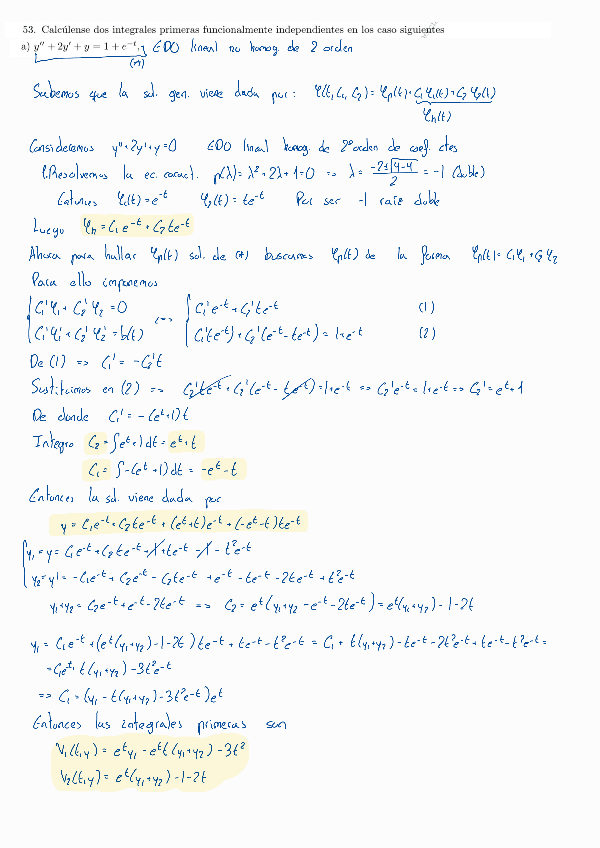 53. Calcúlense dos integrales primeras funcionalmente independientes en los caso siguientes
a) y'' + 2y' + y = 1 + e^{-t}. EDO lineal no homog. de 2 orden
(*)
Sabemos que la sol. gen. viene dada por: φ(t, C₁, C₂) = φp(t) + C₁φ₁(t) + C₂φ₂(t)
φh(t)
Consideremos y''+2y'+y=0 EDO lineal homog. de 2º orden de coef. ctes
Resolvemos la ec. caract. p(λ) = λ² + 2λ + 1 = 0 => λ = (-2±√(4-4))/2 = -1 (doble)
Entonces φ₁(t) = e^{-t} φ₂(t) = te^{-t} Por ser -1 raíz doble
Luego φh = C₁e^{-t} + C₂te^{-t}
Ahora para hallar φp(t) sol. de (*) buscamos φp(t) de la forma φp(t) = C₁φ₁ + C₂φ₂
Para ello imponemos
{ C₁'φ₁ + C₂'φ₂ = 0 <=> { C₁'e^{-t} + C₂'te^{-t} (1)
{ C₁'φ₁' + C₂'φ₂' = b(t) { C₁'(e^{-t}) + C₂'(e^{-t} - te^{-t}) = 1+e^{-t} (2)
De (1) => C₁' = -C₂'t
Sustituimos en (2) => C₂'te^{-t} + C₂'(e^{-t} - te^{-t}) = 1+e^{-t} => C₂'e^{-t} = 1+e^{-t} => C₂' = e^t + 1
De donde C₁' = -(e^t+1)t
Integro C₂ = ∫e^t+1 dt = e^t + t
C₁ = ∫-(e^t + 1) dt = -e^t - t
Entonces la sol. viene dada por
y = C₁e^{-t} + C₂te^{-t} + (e^t+t)e^{-t} + (-e^t-t)te^{-t}
{ y₁ = y = C₁e^{-t} + C₂te^{-t} + 1 + te^{-t} - 1 - t²e^{-t}
{ y₂ = y' = -C₁e^{-t} + C₂e^{-t} - C₂te^{-t} + e^{-t} - te^{-t} - 2te^{-t} + t²e^{-t}
y₁+y₂ = C₂e^{-t} + e^{-t} - 2te^{-t} => C₂ = e^t(y₁+y₂ - e^{-t} - 2te^{-t}) = e^t(y₁+y₂) - 1 - 2t
y₁ = C₁e^{-t} + (e^t(y₁+y₂) - 1 - 2t) te^{-t} + te^{-t} - t²e^{-t} = C₁ + t(y₁+y₂) - te^{-t} - 2t²e^{-t} + te^{-t} - t²e^{-t} =
= C₁e^{-t} + t(y₁+y₂) - 3t²e^{-t}
=> C₁ = (y₁ - t(y₁+y₂) - 3t²e^{-t}) e^t
Entonces las integrales primeras son
V₁(t,y) = e^t y₁ - e^t t(y₁+y₂) - 3t²
V₂(t,y) = e^t(y₁+y₂) - 1 - 2t